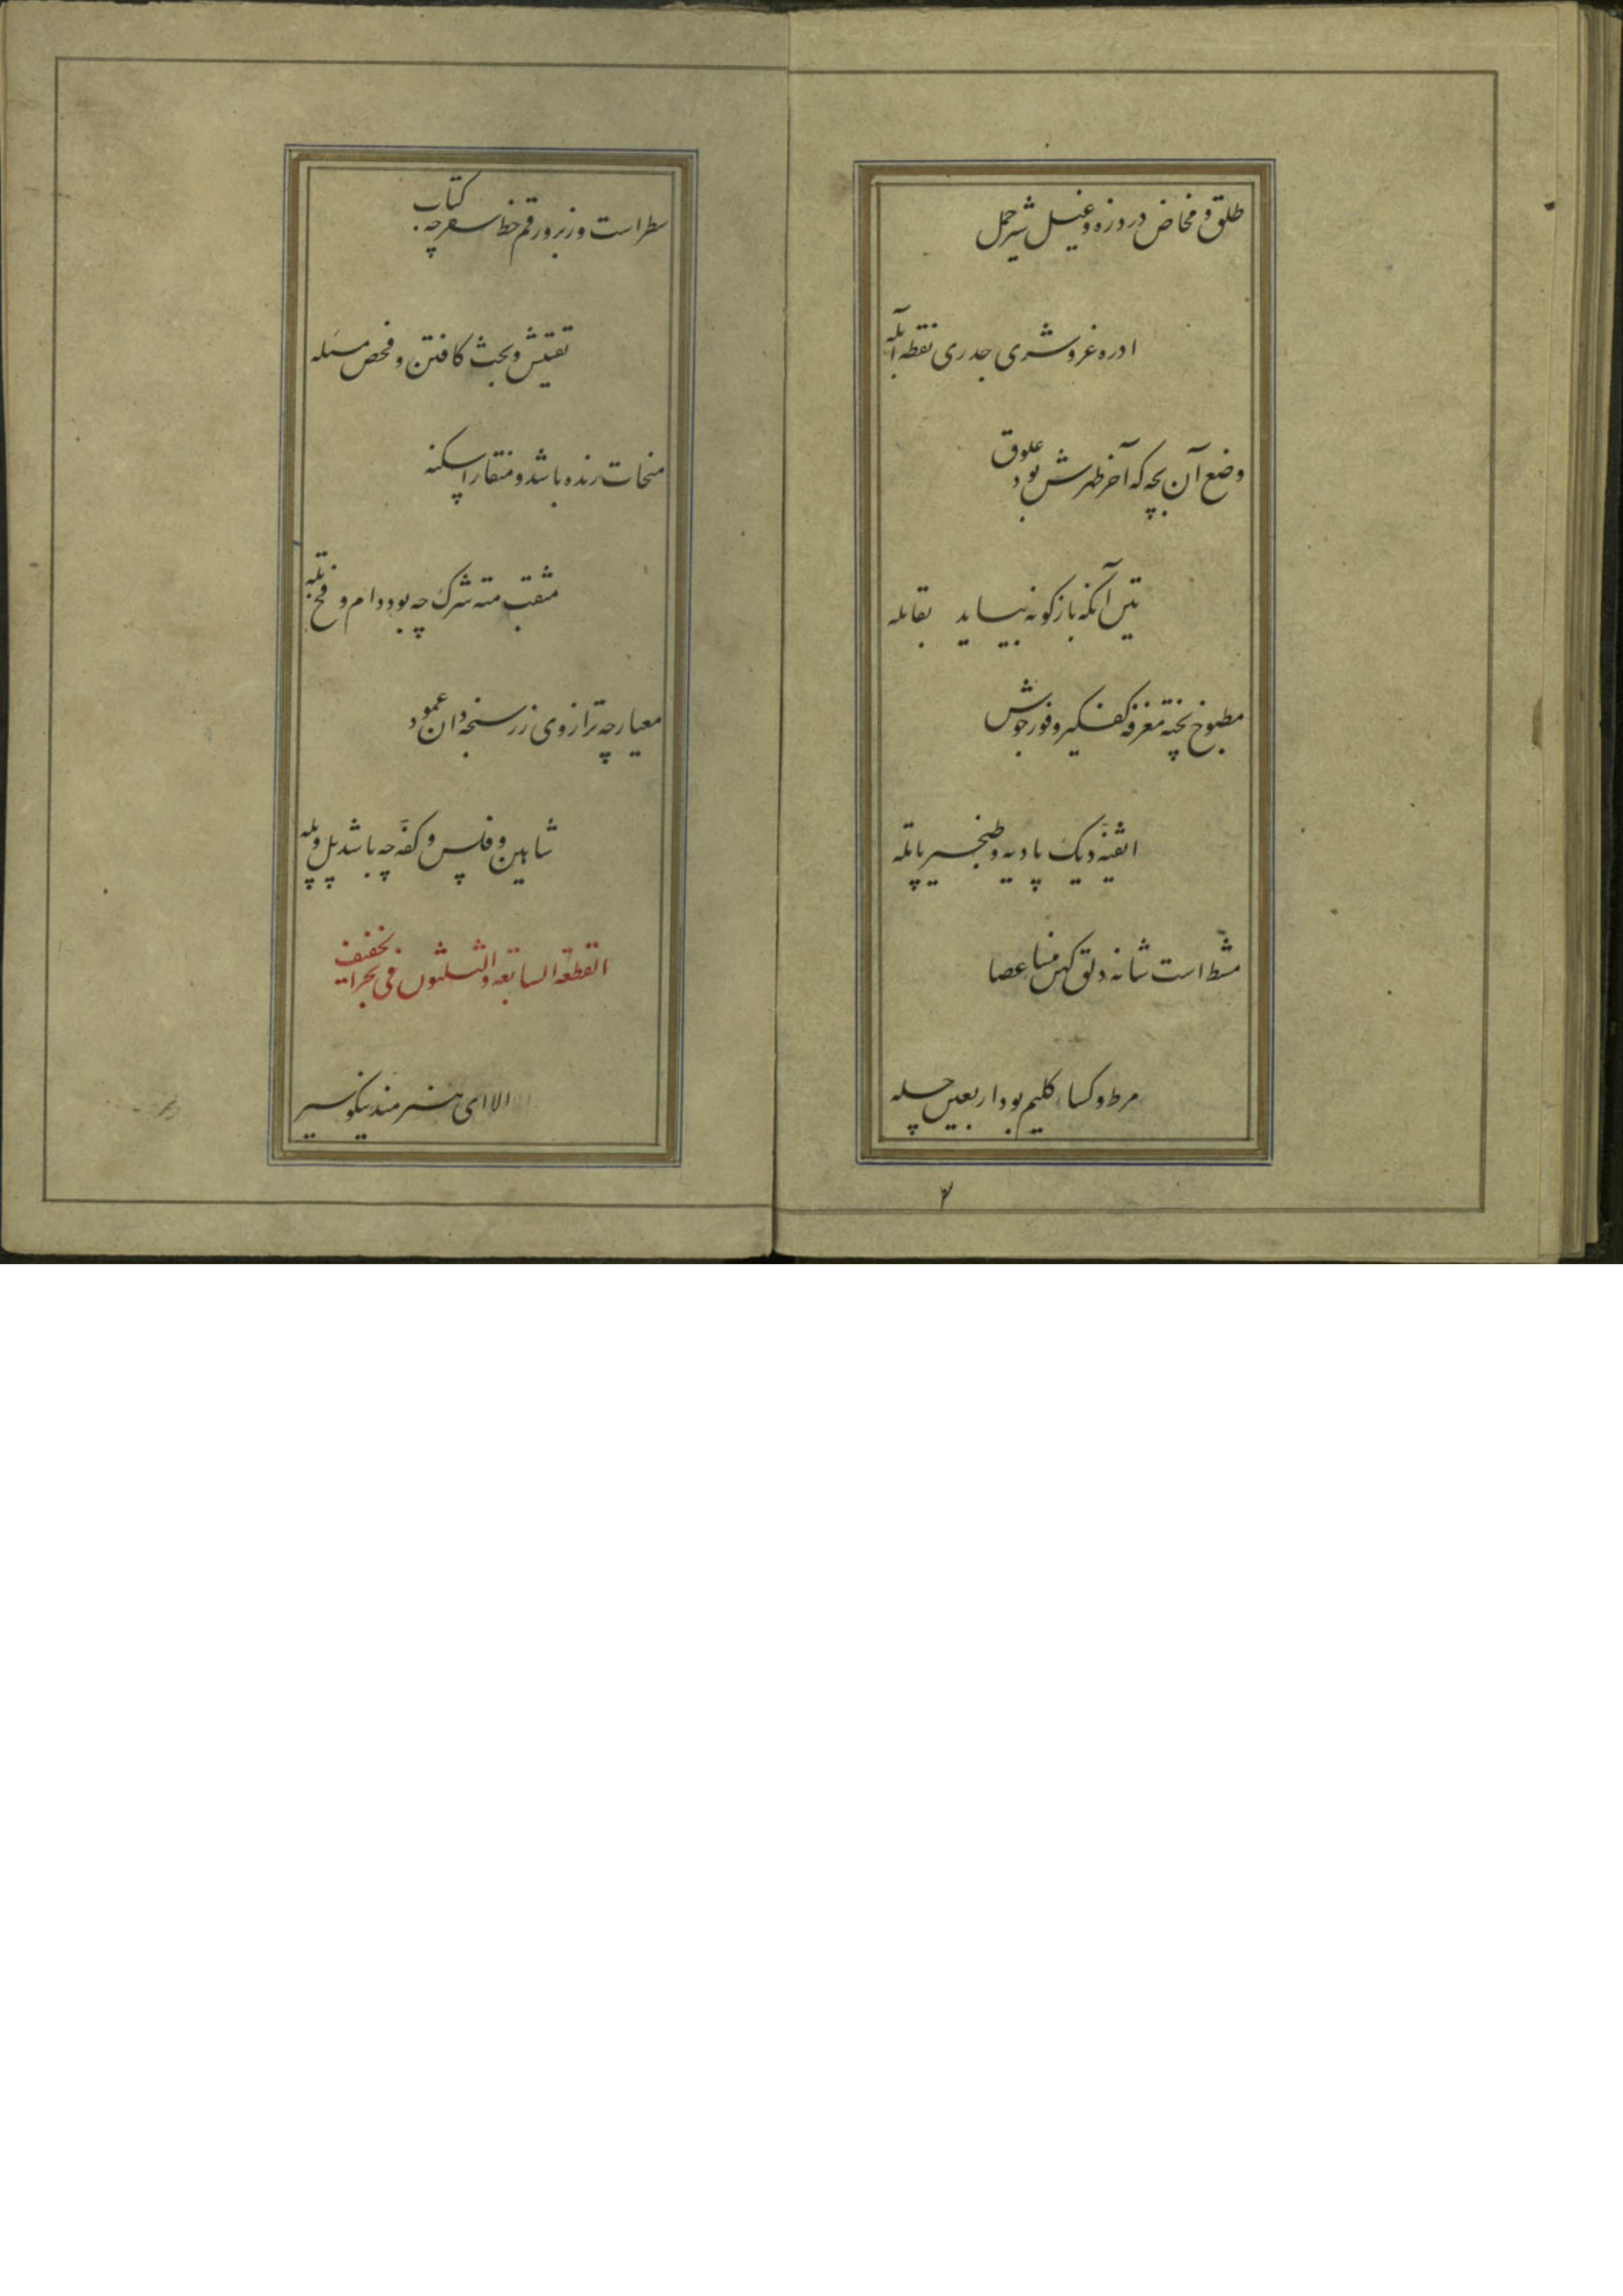 طلق و مخاض درد زه و غیل شیر حمل
ادره غر و شری جدری نقطه آبله
وضع آن بچه که آخر طهرش بود علوق
یتن آنکه بازگونه بیاید بقابله
مطبوخ پخته مغرفه کفگیر و فور جوش
اثفیه دیک پایه و طنجیر پاتیله
مشط است شانه دلق کهن منسا عصا
مرط و کسا گلیم بود اربعین چله
۴
سطر است و زبر و رقم خط سفر چه کتاب
تفتیش و بحث کافتن و فحص مسئله
منحات رنده باشد و منقار اسکنه
مثقب مته شرک چه بود دام و فخ تله
معیار چه ترازوی زر سنجه دان عمود
شاهین و فلس و کفه چه باشد پل و پله
القطعة السابعه و الثلثون فی بحر الخفیف
الا ای هنرمند نیکو سیر